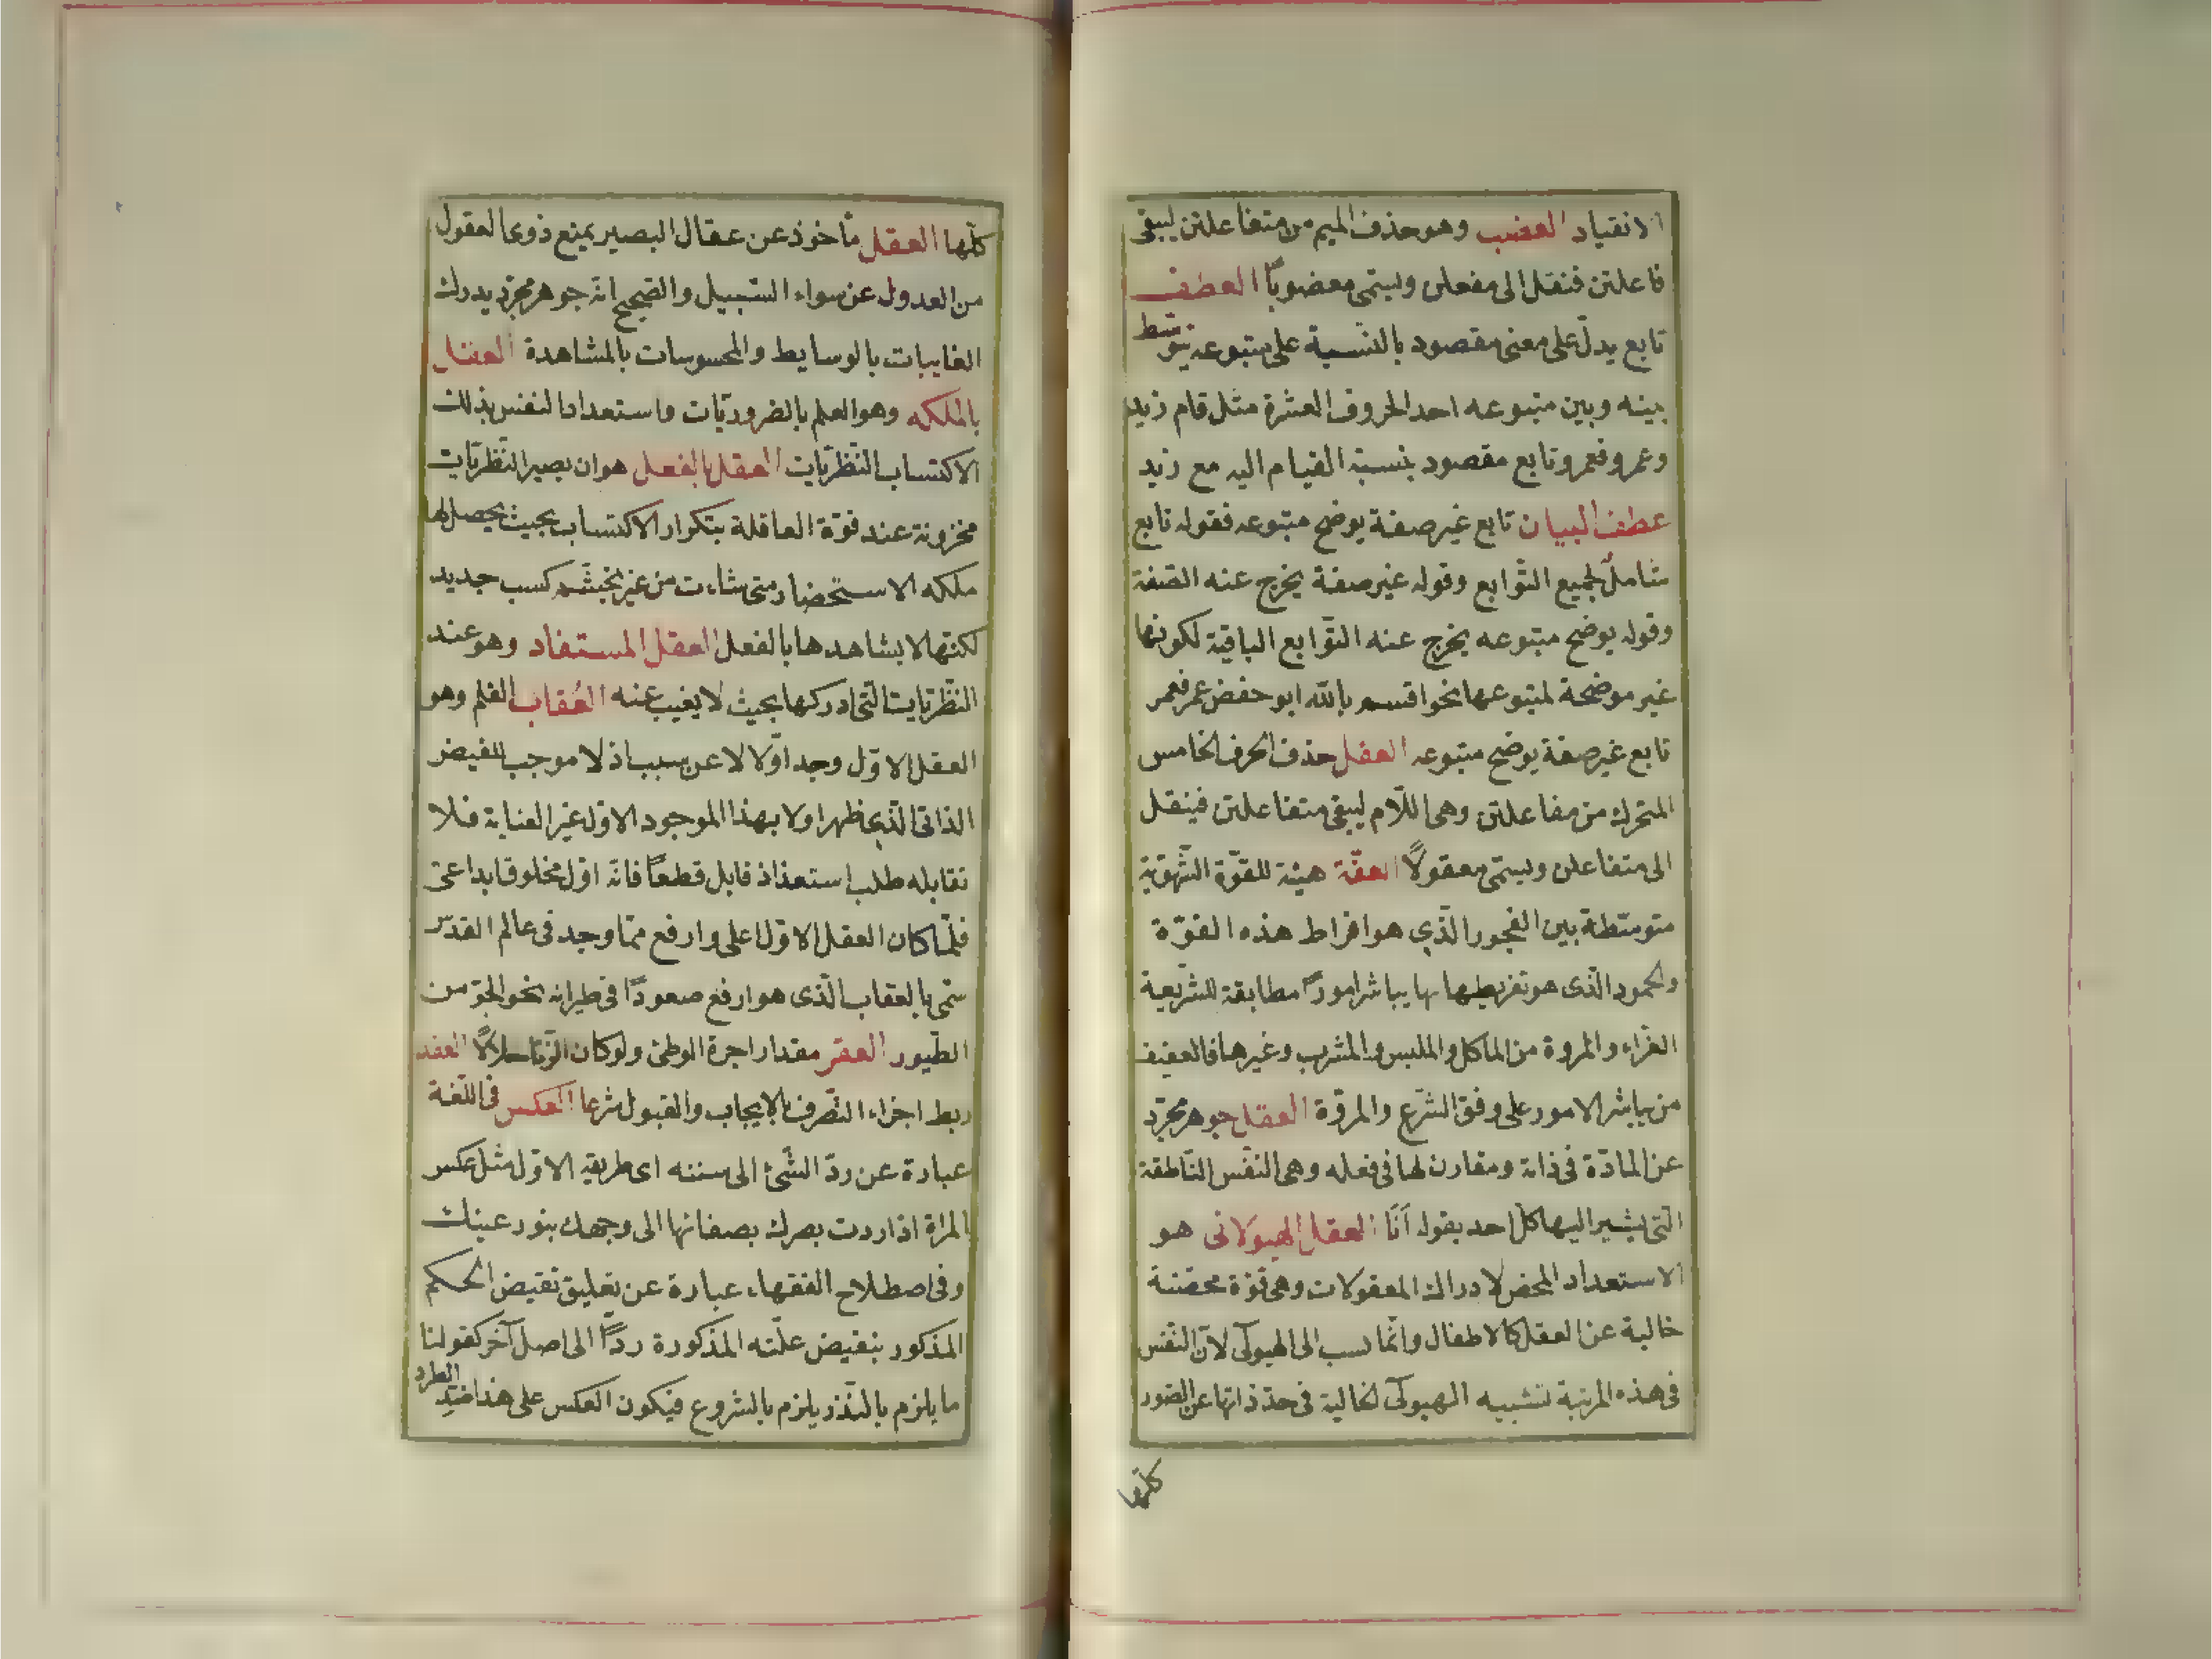 الانقياد العضب وهو حذف الميم من متفاعلتن ليبقى
فاعلتن فنقل الى مفعلن ويسمى معضوباً العطف
تابع يدلّ على معنى مقصود بالنّسبة على متبوعه يتوسّط
بينه وبين متبوعه احد الحروف العشرة مثل قام زيد
وعمرو فعمرو تابع مقصود بنسبة القيام اليه مع زيد
عطف البيان تابع غير صفة يوضح متبوعه فقوله تابع
شاملٌ لجميع التّوابع وقوله غير صفة يخرج عنه الصّفة
وقوله يوضح متبوعه يخرج عنه التّوابع الباقية لكونها
غير موضحة لمتبوعها نحو اقسم بالله ابو حفص عمر فعمر
تابع غير صفة يوضح متبوعه العقل حذف الحرف الخامس
المتحرك من مفاعلتن وهى اللّام ليبقى متفاعلتن فينقل
الى متفاعلن ويسمّى معقولاً العفّة هيئة للقوّة الشّهويّة
متوسّطة بين الفجور الّذي هو افراط هذه القوّة
والخمود الّذى هو تفريطها بها يباشر اموراً مطابقة للشّريعة
الغرّاء والمروة من الماكل والملبس والمشرب وغيرها فالعفيف
من يباشر الامور على وفق الشّرع والمروّة العقل جوهر مجرّد
عن المادّة فى ذاته ومقارن لها فى فعله وهى النّفس النّاطقة
الّتى يشير اليها كلّ احد بقوله أنا العقل الهيولانى هو
الاستعداد المحض لادراك المعقولات وهى قوّة محضة
خالية عن العقل كالاطفال وانّما نسب الى الهيولى لانّ النّفس
فى هذه المرتبة تشبيه الهيولى الخالية فى حدّ ذاتها عن الصّور
كلّها
كلّها العقل مأخوذ عن عقال البصير يمنع ذوى العقول
من العدول عن سواء السّبيل والصّحيح انّه جوهر مجرّد يدرك
الغايبات بالوسايط والمحسوسات بالمشاهدة العقل
بالملكه وهو العلم بالضّروريّات واستعداد النفس بذلك
الاكتساب النّظريّات العقل بالفعل هو ان يصير النّظريّات
مخزونة عند قوّة العاقلة بتكرار الاكتساب بحيث يحصل لها
ملكه الاستحضار متى شاءت من غير تجشّم كسب جديد
لكنّها لا يشاهدها بالفعل العقل المستفاد وهو عند
النّظريّات الّتى ادركها بحيث لا يغيب عنه العُقاب القلم وهو
العقل الاوّل وجد اوّلا لا عن سبب اذ لا موجب للفيض
الذاتى الّذي ظهر اولا بهذا الموجود الاوّل غير العناية فلا
تقابله طلب استعداد قابل قطعاً فانّه اوّل مخلوق ابداعى
فلمّا كان العقل الاوّل اعلى وارفع ممّا وجد فى عالم القدس
سمّى بالعقاب الّذى هو ارفع صعوداً فى طيرانه نحو الجوّ من
الطّيور العقر مقدار اجرة الوطئ ولو كان الزّنا حلالاً العقد
ربط اجزاء التّصرف بالايجاب والقبول شرعا العكس فى اللّغة
عبارة عن ردّ الشّئ الى سننه اى طريقه الاوّل مثل عكس
المرأة اذا ردت بصرك بصفائها الى وجهك بنور عينك
وفى اصطلاح الفقهاء عبارة عن تعليق نقيض الحكم
المذكور بنقيض علّته المذكورة ردّاً الى اصل آخر كقولنا
ما يلزم بالنّذر يلزم بالشروع فيكون العكس على هذا ضدّ الطرد